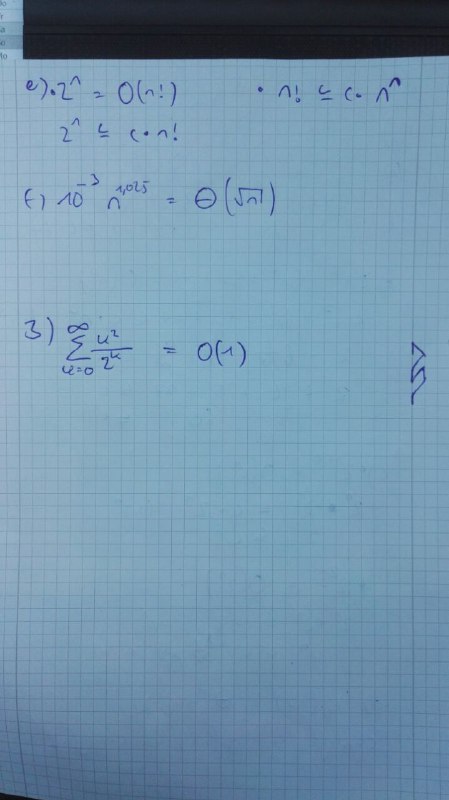 e) • 2^n = O(n!) • n! ≤ c • n^n
2^n ≤ c • n!
f) 10^-3 n^1,025 = Θ(√n)
3) ∑_{k=0}^{∞} k²/2^k = O(1)